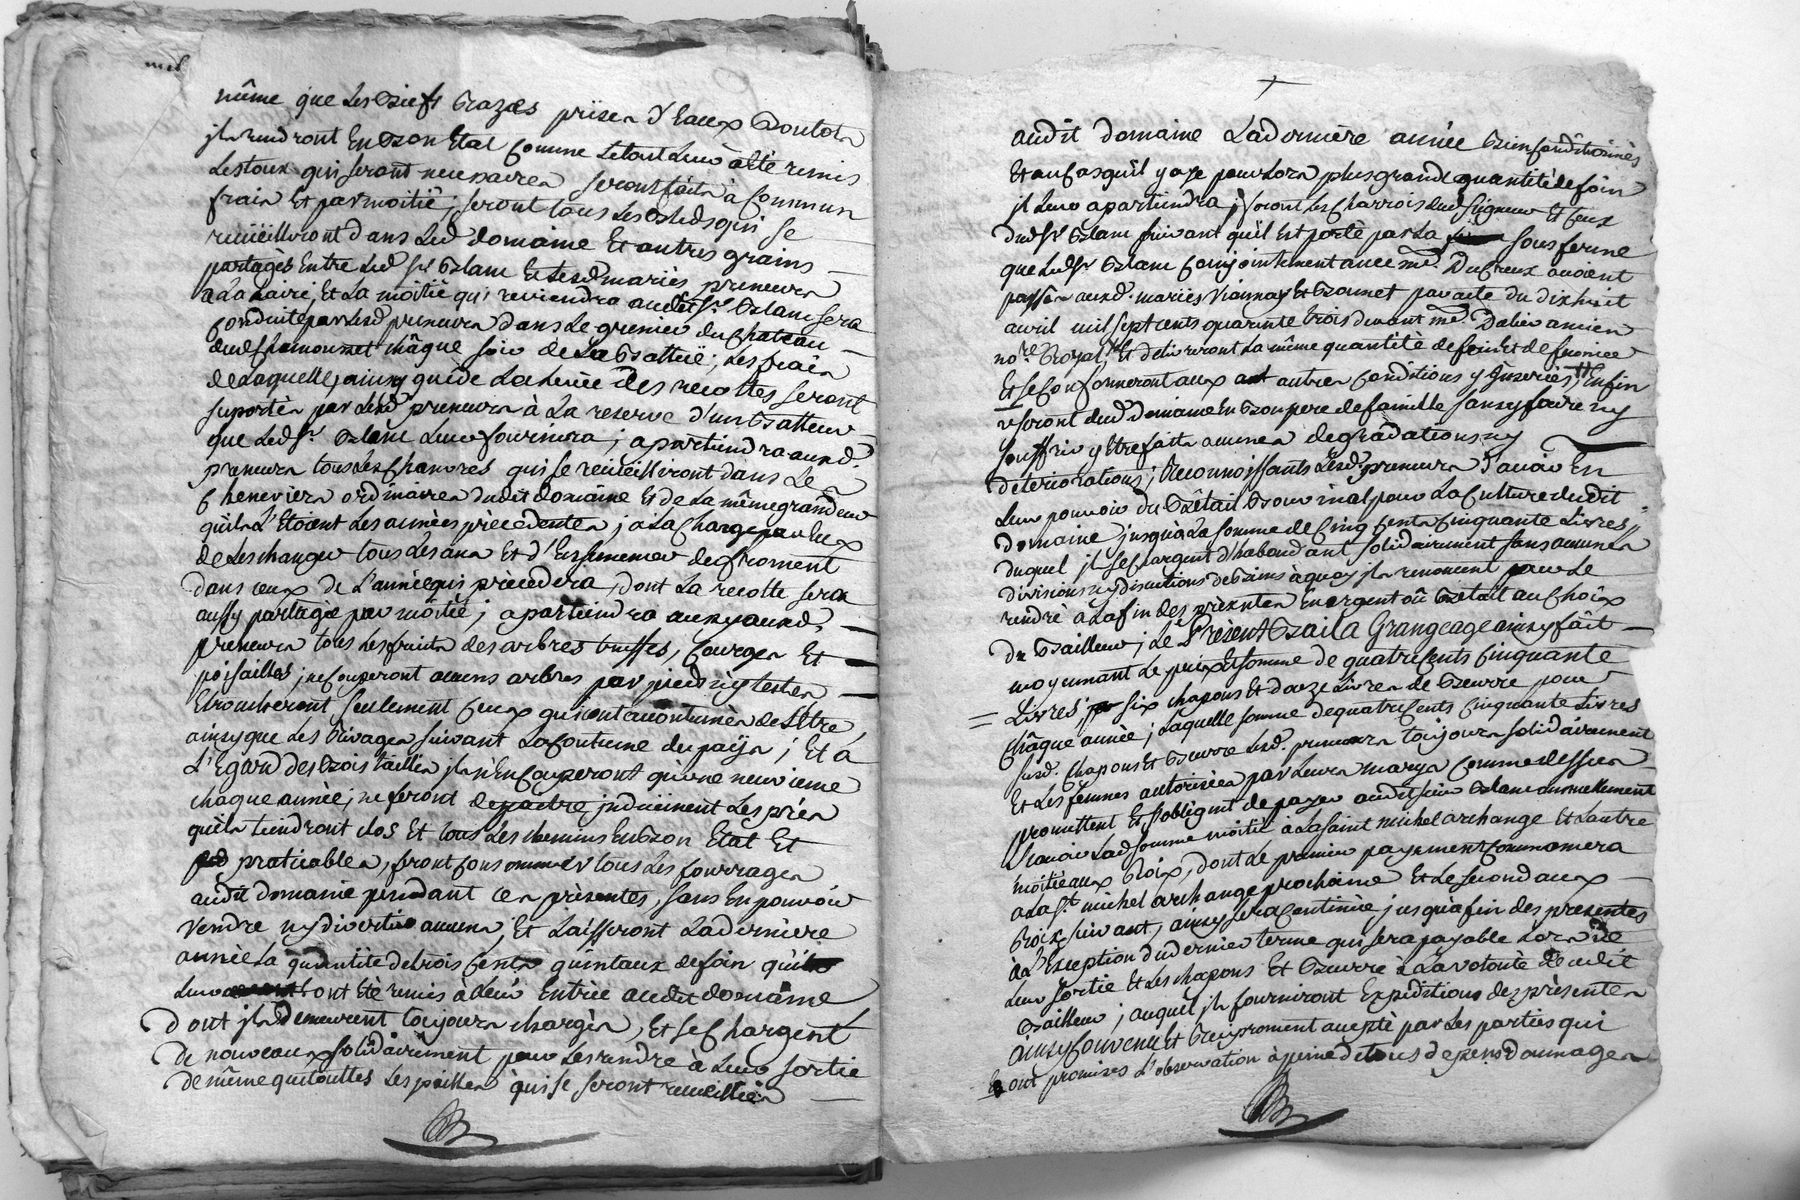 même que les biefs razes prises d'eaux dont
ils rendront en bon etat comme le tout leur a eté remis
les toux qui seront necessaires seront faits à commun
frais et par moitié; seront tous les bleds qui se
recüeilliront dans led domaine et autres grains
partagés entre led sr. blanc et lesd mariés preneurs
a la haire; et la moitié qui reviendra audit sr. blanc sera
conduite par lesd preneurs dans le grenier du chateau
dud chamounet châque soir de la batteü; les frais
de laquelle, ainsy que de la levée des recoltes seront
suportés par lesd preneurs à la reserve d'un batteur
que led sr. blanc leur fournira; apartiendra auxd.
preneurs tous les chanvres qui se recüeilliront dans les
cheneviers ordinaires dudit domaine et de la même grandeur
qu'ils l'etoient les années précédentes; a la charge par eux
de les changer tous les ans et d'ensemencer de froment
dans ceux de l'année qui précédera, dont la recolte sera
aussy partagée par moitié; apartiendra aussy auxd.
preneurs tous les fruits des arbres truffes, courges et
poisailles; ne couperont aucuns arbres par pied ny testes
etroncheront seulement ceux qui sont accoutumés de l'etre,
ainsy que les rivages suivant la coutume du païs; et à
l'egard des bois taillis ils n'en couperont qu'une neuvieme
chaque année; ne feront depaitre induëment les prés
qu'ils tiendront clos et tous les chemins en bon etat et
praticables, front consommer tous les fourrages
audit domaine pendant ces présentes, sans en pouvoir
vendre ny divertir aucuns, et laisseront la derniére
année la quantité de trois cents quintaux de foin qui
leur ont eté remis à leur entrée audit domaine
dont ils demeurent toujours chargés, et se chargent
de nouveau solidairement pour les rendre à leur sortie
de même que touttes les pailles qui se seront recüeillies
audit domaine la derniére année bien conditionnés
et au cas qu'il y aye pour lors plus grande quantité de foin
il leur apartiendra; feront les charrois dud seigneur et ceux
dud sr. blanc suivant qu'il est porté par la sous ferme
que led sr. blanc conjointement avec me. Ducreux avoient
passé auxd. mariés Viannay et Bonnet par acte du dix huit
avril mil sept cents quarante trois devant me. Dalier ancien
nore. Royal. et delivreront la même quantité de foin et de fumier
et se conformeront aux autres conditions y inserées; enfin
useront dud domaine en bon pere de famille sans y faire ny
souffrir y etre faits aucunes degradations ny
déteriorations; reconnoissants lesd. preneurs d'avoir en
leur pouvoir du bétail pour la culture dudit
domaine jusqu'à la somme de cinq cents cinquante livres,
duquel ils se chargent d'habondant solidairement sans aucunes
divisions ny discutions de biens à quoy ils renoncent pour le
rendre à la fin des présentes en argent où bétail au choix
du bailleur; le présent bail a grangeage ainsy fait
moyennant le prix et somme de quatre cents cinquante
livres, six chapons et douze livres de beurre pour
châque année; laquelle somme de quatre cents cinquante livres
susd. chapons et beurre lesd. preneurs toujours solidairement
et les femmes autorisées par leurs marys comme dessus
promettent et s'obligent de payer audit sieur blanc annuellement
sçavoir lad somme moitié à la saint michel archange et l'autre
moitié aux Roix, dont le premier payement commancera
a la st. michel archange prochaine et le second aux
Roix suivant, ainsy sera continüé jusqu'a fin des présentes
à l'exception du dernier terme qui sera payable lors de
leur sortie et les chapons et beurre à la volonté dudit
bailleur; auquel ils fourniront expeditions des présentes
ainsy convenu et reciproment accepté par les parties qui
en ont promises l'observation à peine de tous depens dommages